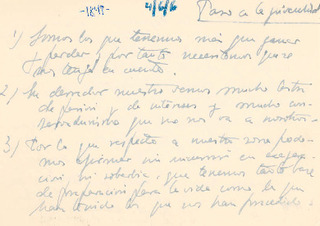 -1848-
Paso a la juventud
1) Somos los que tenemos más que ganar
y perder y por tanto necesitamos que se
nos tenga en cuenta.
2) A nuestro vemos mucha
de y de intereses y mucho con-
que no nos va a nosotros.
3) Por lo que respecta a nuestra zona pode-
mos afirmar sin incurrir en exagera-
ción ni soberbia, que tenemos tanta base
de preparación para la vida como la que
han tenido los que nos han precedido.